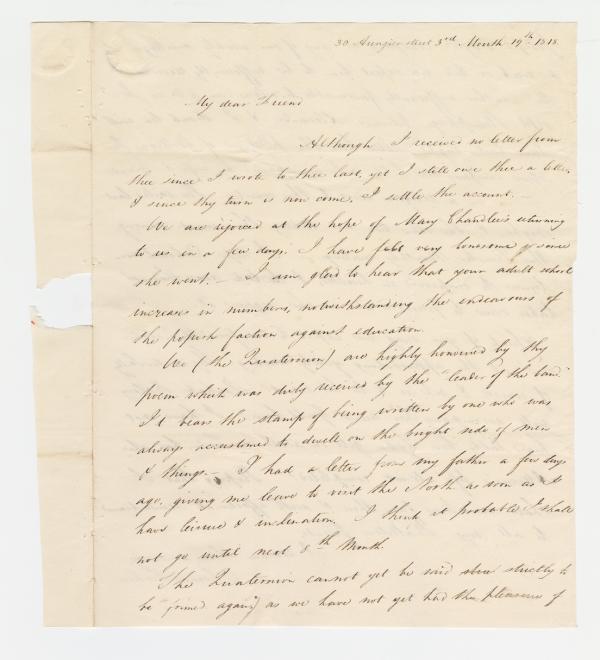 30 Aungier street 3rd Month 19th 1818.
My dear Friend
Although I received no letter from
thee since I wrote to thee last, yet I still owe thee a letter,
& since thy turn is now come, I settle the account. —
We are rejoiced at the hope of Mary Chandlee's returning
to us in a few days. I have felt very lonesome since
she went. — I am glad to hear that your adult school
increases in numbers, notwithstanding the endeavours of
the popish faction against education.
We (the Quaternion) are highly honoured by thy
poem which was duly received by the "leader of the band"
It bears the stamp of being written by one who was
always accustomed to dwell on the bright side of men
& things. — I had a letter from my father a few days
ago, giving me leave to visit the North as soon as I
have leisure & inclination. I think it probable I shall
not go until next 8th Month.
The Quaternion cannot yet be said strictly to
be "joined again" as we have not yet had the pleasure of